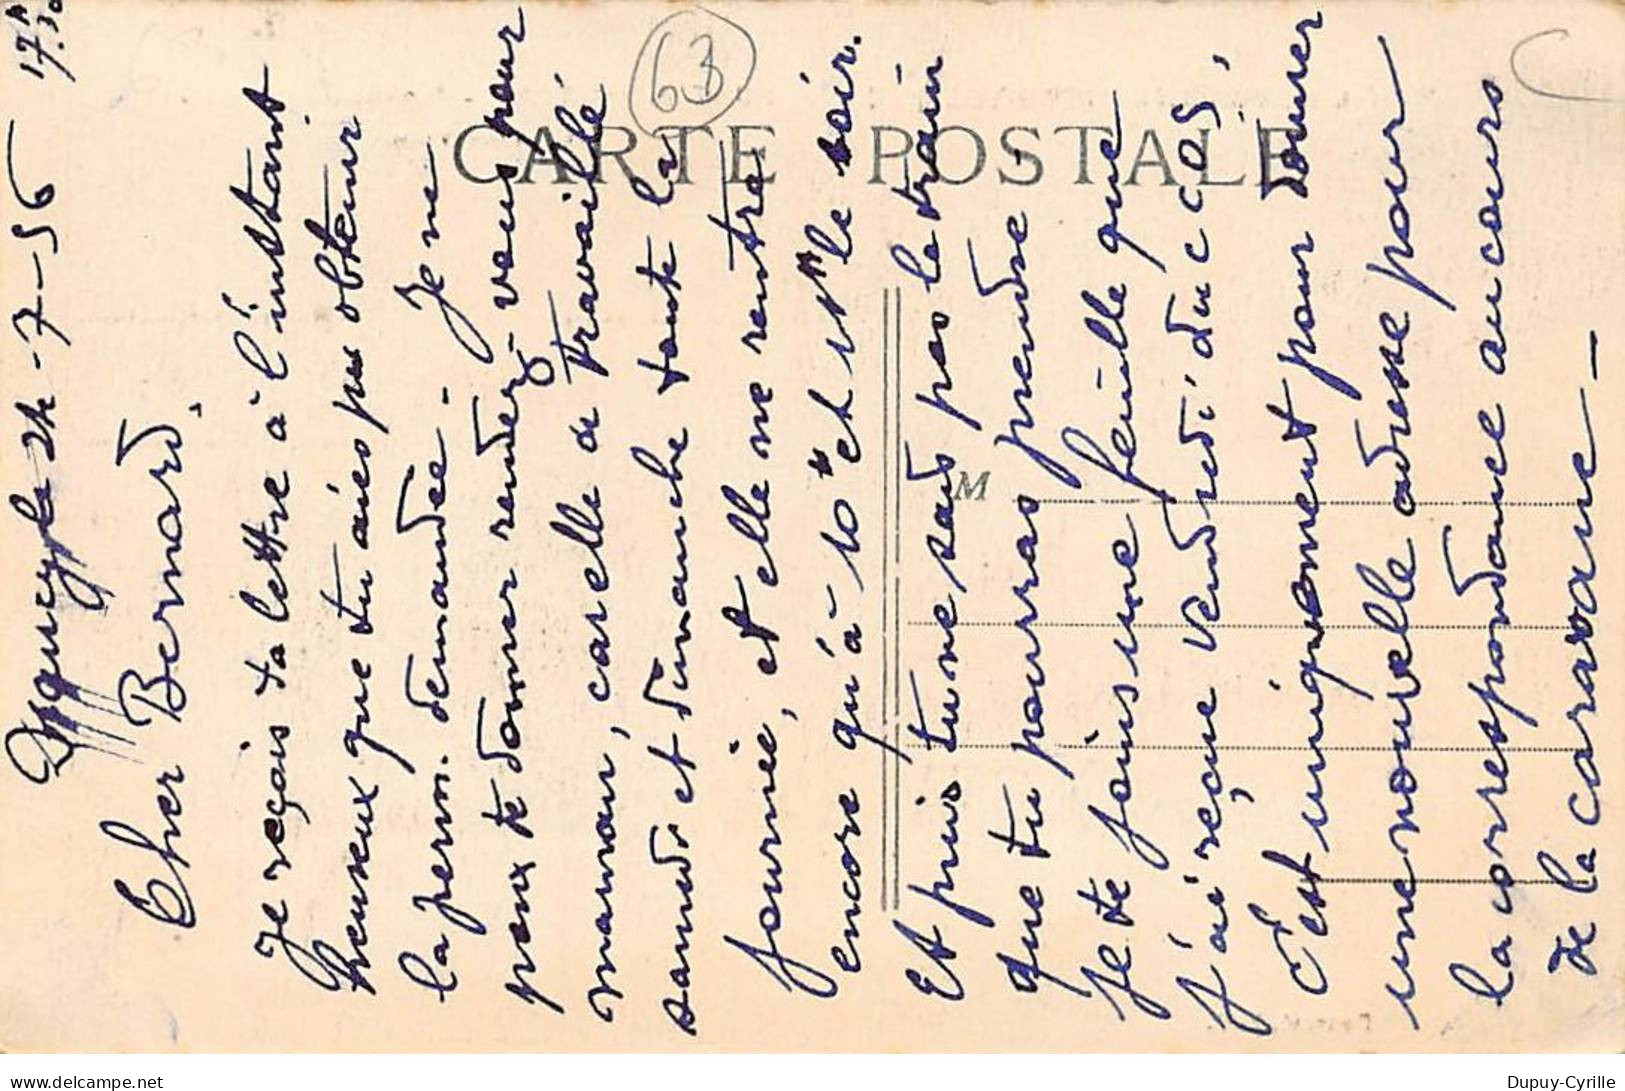 le 24-7-56 17h30
Cher Bernard.
Je reçois ta lettre à l'instant
heureux que tu aies pu obtenir
la perm. demandée - Je ne
peux te donner rendez-vous pour
maman, car elle a travaillé
samedi et dimanche toute la
journée, et elle ne rentre
encore qu'à 10h et 11h le soir.
Et puis tu ne sais pas le train
que tu pourras prendre -
Je te joins une feuille que
j'ai reçue vendredi du CCOS,
c'est uniquement pour donner
une nouvelle adresse pour
la correspondance au cours
de la caravane -
CARTE POSTALE
M
63
Dupuy-Cyrille